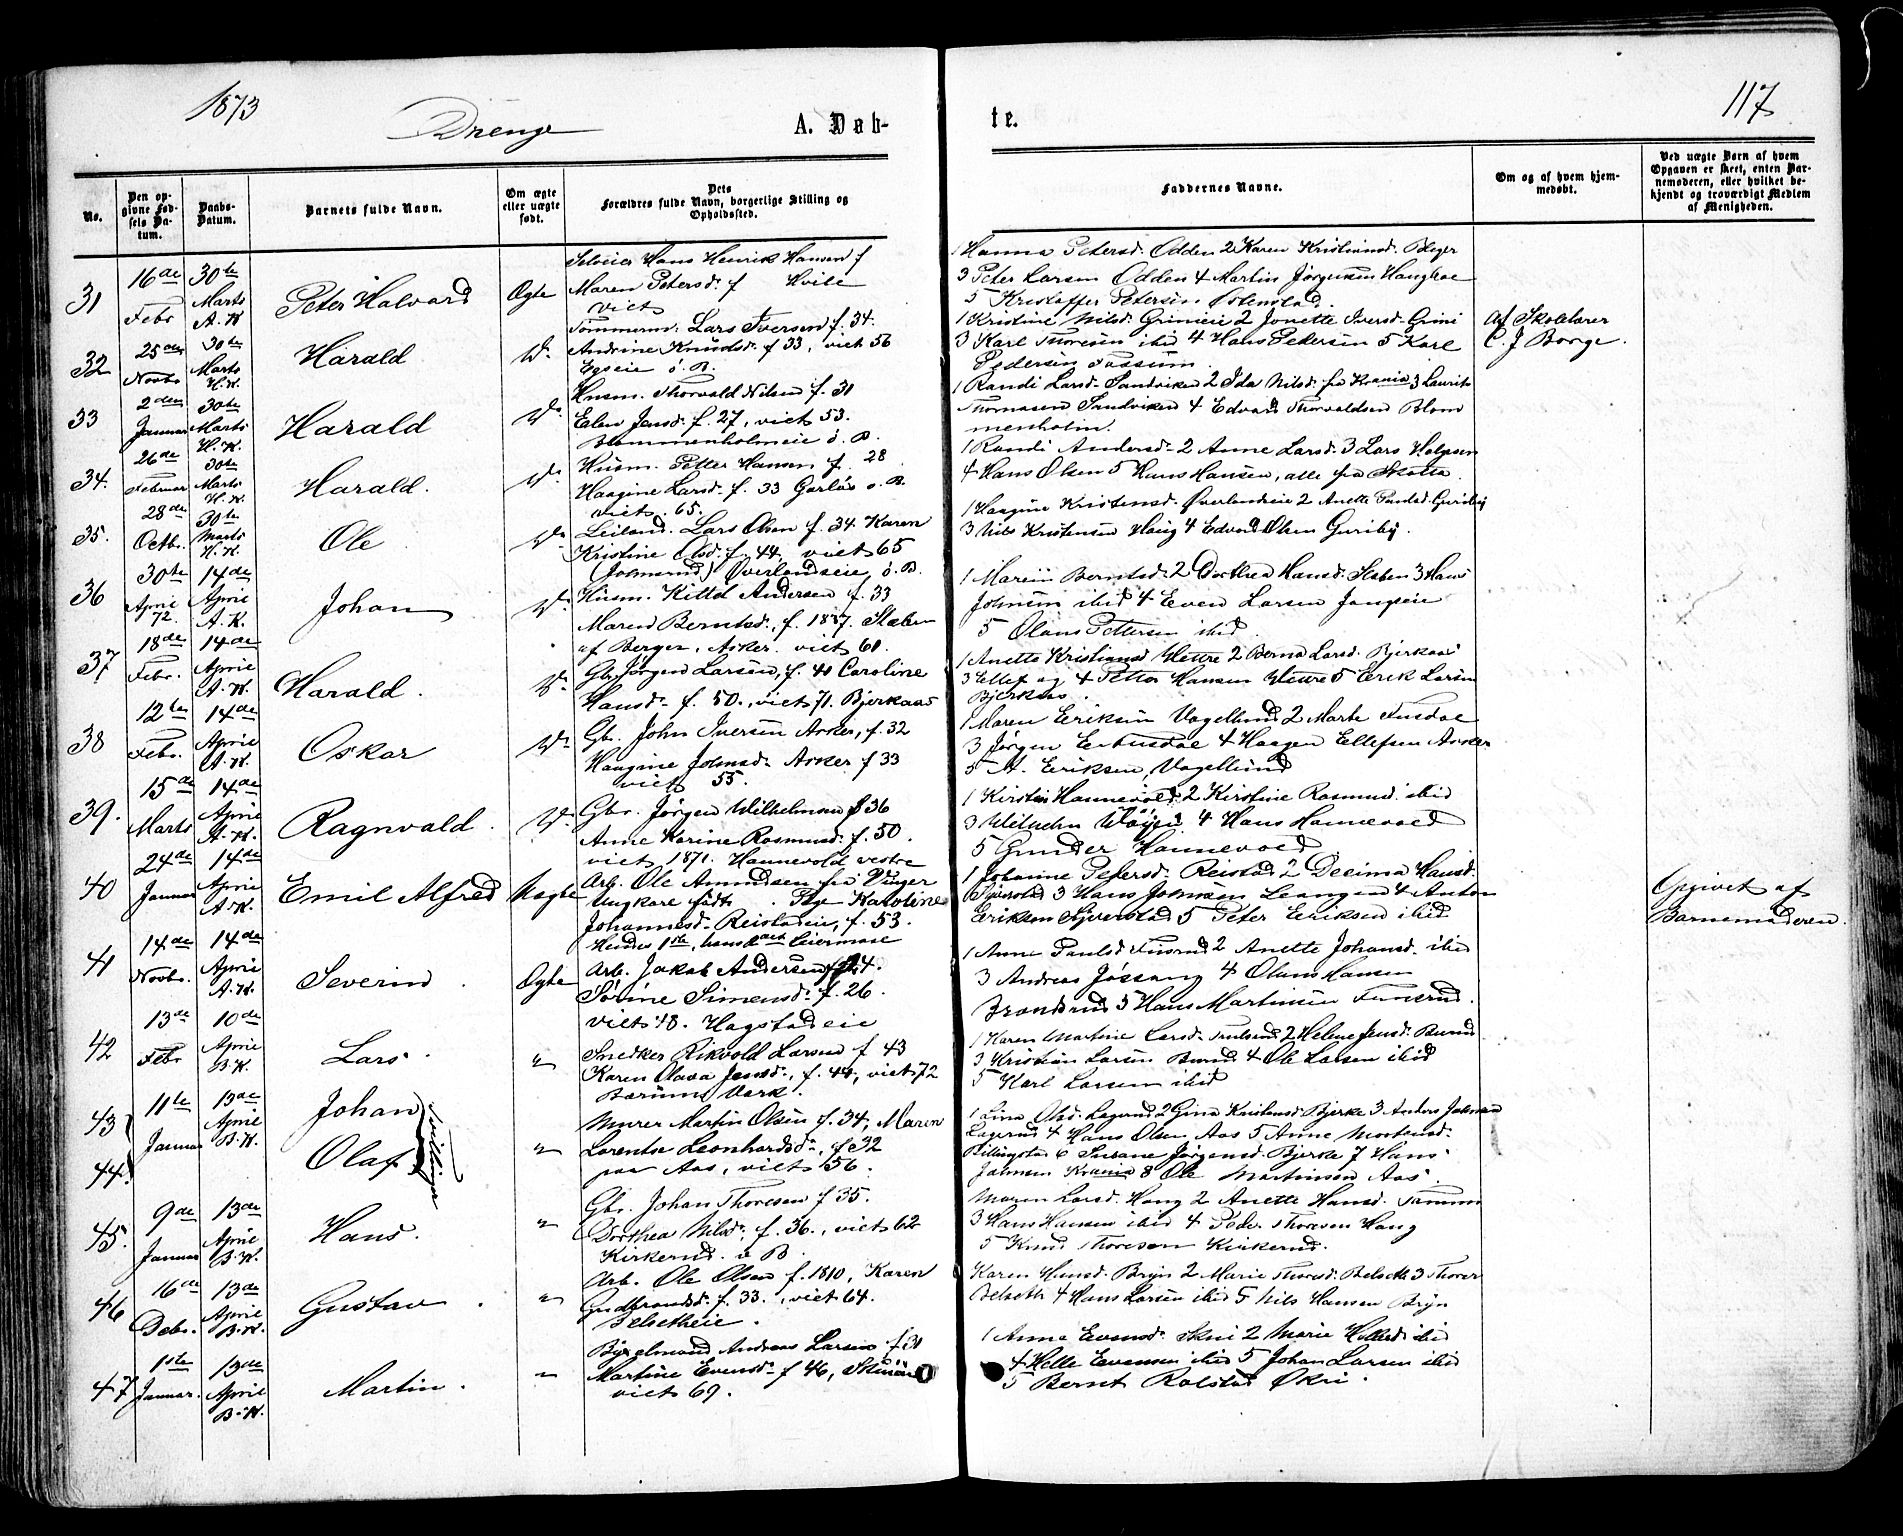 1873
Drenge
A. Døb-
te.
117
No.
Den opgivne Fødsels Datum.
Daabs-Datum.
Barnets fulde Navn.
Om ægte eller uægte født.
Dets Forældres fulde Navn, borgerlige Stilling og Opholdssted.
Faddernes Navne.
Om og af hvem hjemmedøbt.
Ved uægte Børn af hvem Opgaven er skeet, enten Barnemoderen, eller hvilket bekjendt og troværdigt Medlem af Menigheden.
31
16de Febr
30te Marts A.K
Peter Halvard
Ægte
Hans Henrik Hansen f
Maren Petersd. f Hvile
viet
1 Hanna Petersd. Odden 2 Karen Kristiansd.
3 Peter Larsen Odden 4 Martin Jørgensen
5 Kristoffer Petersen
32
25de Novbr
30te Marts H.K.
Harald
Do
Tømmerm. Lars Iversen f. 34.
Andrine Knudsd. f 33, viet 56
Egseie i B.
1 Kristine Nilsd. Grinieie 2 Jonette Iversd. Grini
3 Karl Thoresen ibid 4 Hans Pedersen 5 Karl
Pedersen Fossum
Af Skolelærer
C. J Borge.
33
2den Januar
30te Marts H.K.
Harald
Do
Husm. Thorvald Nilsen f. 31
Elen Jensd. f. 27, viet 53.
Blommenholmeie i B.
1 Randi Larsd. Sandviken 2 Ida Nilsd. fra Krania 3 Laurits
Thomasen Sandviken 4 Edvard Thorvaldsen Blom
menholm.
34.
26de Februar
30te Marts H.K.
Harald.
Do
Husm. Petter Hansen f. 28
Haagine Larsd. f. 33 Garløs i B.
viet. 65.
1 Randi Andersd. 2 Anne Larsd. 3 Lars Holgesen
4 Hans Olsen 5 Hans Hansen, alle fra Skotta.
35.
28de Octbr.
30te Marts H.K.
Ole
Do
Leiland. Lars Olsen f. 34. Karen
Kristine Olsd. f. 44. viet 65
Øverlandseie i B.
1 Haagine Kristensd. Øverlandseie 2 Anette
3 Nils Kristensen Haug 4 Edvard Olsen
36
30te April 72.
14de April A.K.
Johan
Do
Husm. Kittel Andersen f. 33
Maren Berntsd., f. 1837. Staben
af Berger, Asker. viet 60.
1 Maren Berntsd. 2 Dorthea Hansd. Staben 3 Hans
Johnsen ibid 4 Even Larsen
5 Olaus Pettersen ibid
37
18de Febr.
14de April A.K.
Harald.
Do
Gbr. Jørgen Larsen, f. 40 Caroline
Hansd. f. 50., viet 71. Bjerkaas
1 Anette Kristiansd Hettre 2 Berna Larsd. Bjerkaas
3 Ellef og 4 Petter Hansen Hettre 5 Eerik Larsen
Bjerkaas.
38
12te Febr.
14de April A.K.
Oskar
Do
Gbr. John Iversen Asker, f. 32
Haagine Johnsd. Asker f 33
viet 55.
1 Maren Eriksen Vogellund 2 Marte Fusdal
3 Jørgen E. Fusdal 4 Haagen Ellefsen Asker
5 A. Eriksen, Vogellund
39.
15de Marts
14de April A.K.
Ragnvald.
Do
Gbr. Jørgen Wilhelmsen f 36
Anne Karine Rasmusd. f. 50.
viet 1871. Hannevold vestre
1 Kirsten Hannevold 2 Kirstine Rasmusd. ibid
3 Wilhelm Wøyen 4 Hans Hannevold
5 Gunder Hannevold
40
24de Januar
14de April A.K.
Emil Alfred
Uægte
Arb. Ole Amundsen fra Vinger
Ungkarl født . Pige Karoline
Johannesd. Reistadeie, f. 53.
Hendes 1ste, hans 2det Leiermaal
1 Johanne Petersd. Reistad 2 Decima Hansd.
Gjersstad 3 Hans Johnsen Leangen 4 Anton
Eriksen 5 Peter Eriksen ibid
Opgivet af
Barnemoderen.
41
14de Novbr.
14de April A.K.
Severin.
Ægte
Arb. Jakob Andersen f 24.
Sørine Simensd. f. 26.
viet 48. Hogstadeie
1 Anne Paulsd 2 Anette Johansd. ibid
3 Andreas Jøssang 4 Olaus Hansen
5 Hans Martinsen
42
13de Febr
10de April B.K.
Lars.
"
Snedker Rikvold Larsen f 43
Karen Olava Jensd., f. 44, viet 72
Bærums Værk.
1 Karen Martine Larsd. 2 Helene Jensd. Burud
3 Kristian Larsen Burud 4 Ole Larsen ibid
5 Karl Larsen ibid
43
44.
11te Januar
13de April B.K.
Johan
Olaf
Tvillinger
"
Murer Martin Olsen f. 34, Maren
Lorentse Leonhardsd., f. 32
paa Aas, viet 56.
1 Lina Olsd. Løgerud 2 Gina Kristensd. Bjerke 3 Anders Johnsen
Løgerud 4 Hans Olsen Aas 5 Anne Mortensd.
Billingstad 6 Susane Jørgensd. Bjerke 7 Hans
Johnsen Krania 8 Ole Martinsen Aas.
45.
9de Januar
13de April B.K.
Hans.
"
Gbr. Johan Thoresen f 35.
Dorthea Nilsd. f. 36., viet 62
Kirkerud. i B.
Maren Larsd. Haug 2 Anette Hansd.
3 Hans Hansen ibid 4 Peder Thoresen Haug
5 Knud Thoresen Kirkerud.
46
16de Debr.
13de April B.K.
Gustav.
"
Arb. Ole Olsen f. 1810, Karen
Gudbrandsd. f. 33., viet 64.
Belsetheie.
Karen Hansd. Bryn 2 Marie Thoresd. Belseth 3 Thorer
Belseth 4 Hans Larsen ibid 5 Nils Hansen Bryn
47
1ste Januar.
13de April B.K.
Martin.
"
Andreas Larsen f 31
Martine Evensd. f 46,
viet 69.
1 Anne Evensd. Skui 2 Marie ibid
4 Helle Evensen ibid 5 Johan Larsen ibid
5 Bernt Rolstad Økri.